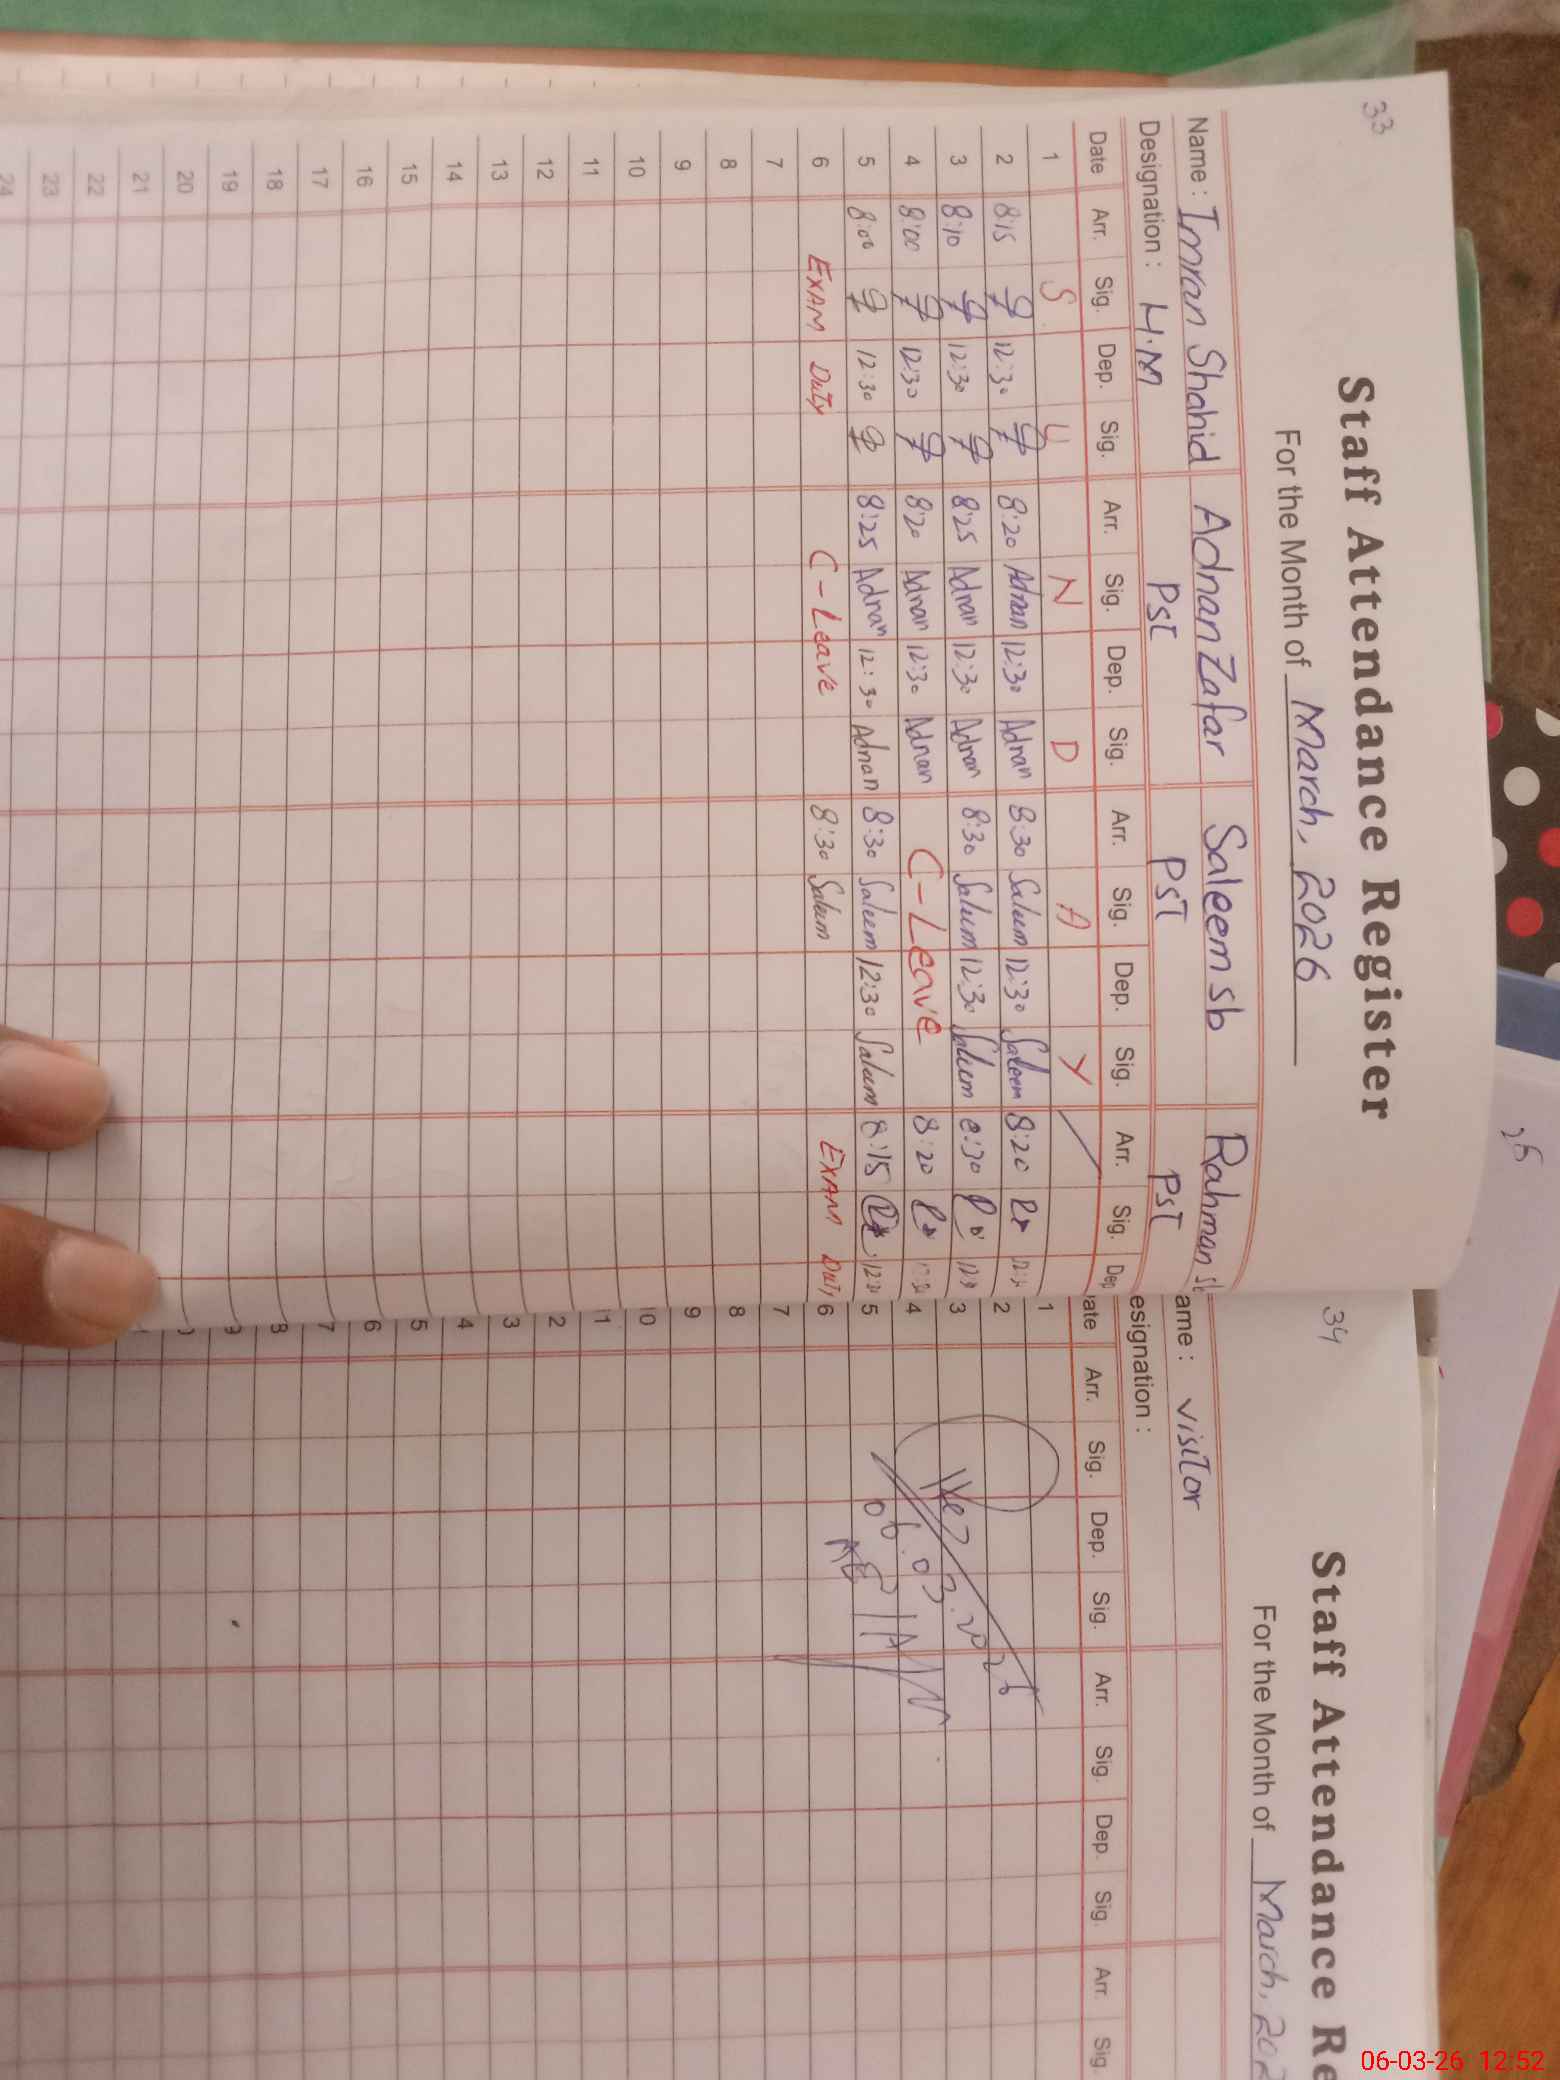 33
Staff Attendance Register
For the Month of March, 2026
Name : Imran Shahid Adnan Zafar Saleem sb Rahman sb
Designation : H.M PST PST PST
Date Arr. Sig. Dep. Sig. Arr. Sig. Dep. Sig. Arr. Sig. Dep. Sig. Arr. Sig. Dep
1 S U N D A Y
2 8:15 12:30 8:20 Adnan 12:30 Adnan 8:30 Saleem 12:30 Saleem 8:20
3 8:10 12:30 8:25 Adnan 12:30 Adnan 8:30 Saleem 12:30 Saleem 8:30
4 8:00 12:30 8:20 Adnan 12:30 Adnan C-Leave 8:20
5 8:00 12:30 8:25 Adnan 12:30 Adnan 8:30 Saleem 12:30 Saleem 8:15
6 EXAM DUTY C-Leave 8:30 Saleem EXAM DUTY
7
8
9
10
11
12
13
14
15
16
17
18
19
20
21
22
23
24
34
Staff Attendance Re
For the Month of March, 202
ame : visitor
esignation :
ate Arr. Sig. Dep. Sig. Arr. Sig. Dep. Sig. Arr. Sig.
1
2
3
4
5
6
7
8
9
10
11
2
3
4
5
6
7
8
9
06.03.2026
06-03-26 12:52